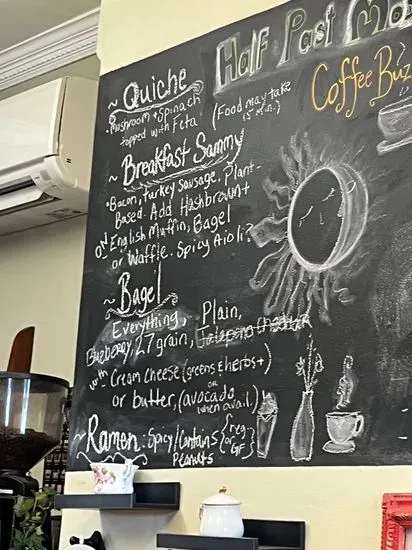 Half Past Ma
Coffee Buz
~ Quiche
• Mushroom + Spinach
topped with Feta
(Food may take
15 min.)
~ Breakfast Sammy
• Bacon, Turkey Sausage, Plant
Based. Add Hashbrown +
on English Muffin, Bagel
or Waffle. Spicy Aioli?
~ Bagel
Everything, Plain,
Blueberry, 27 grain, Jalapeno Cheddar
with Cream Cheese (greens & herbs +)
or butter, (avocado or
when avail.)
~ Ramen: Spicy/Contains
Peanuts
{reg.
or
GF}